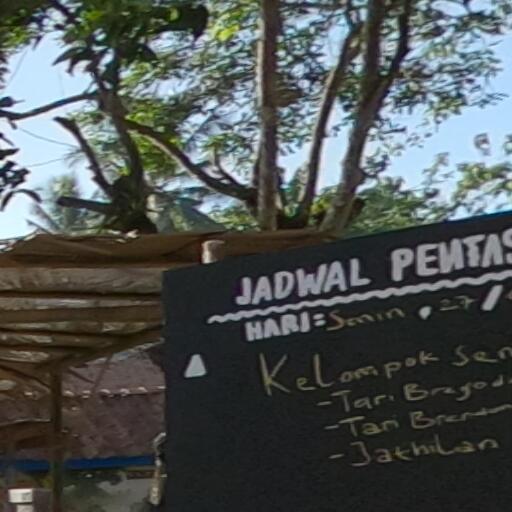 JADWAL PENTAS
HARI: Senin, 27/
Kelompok Sen
- Tari Bregod
- Tari
- Jathilan